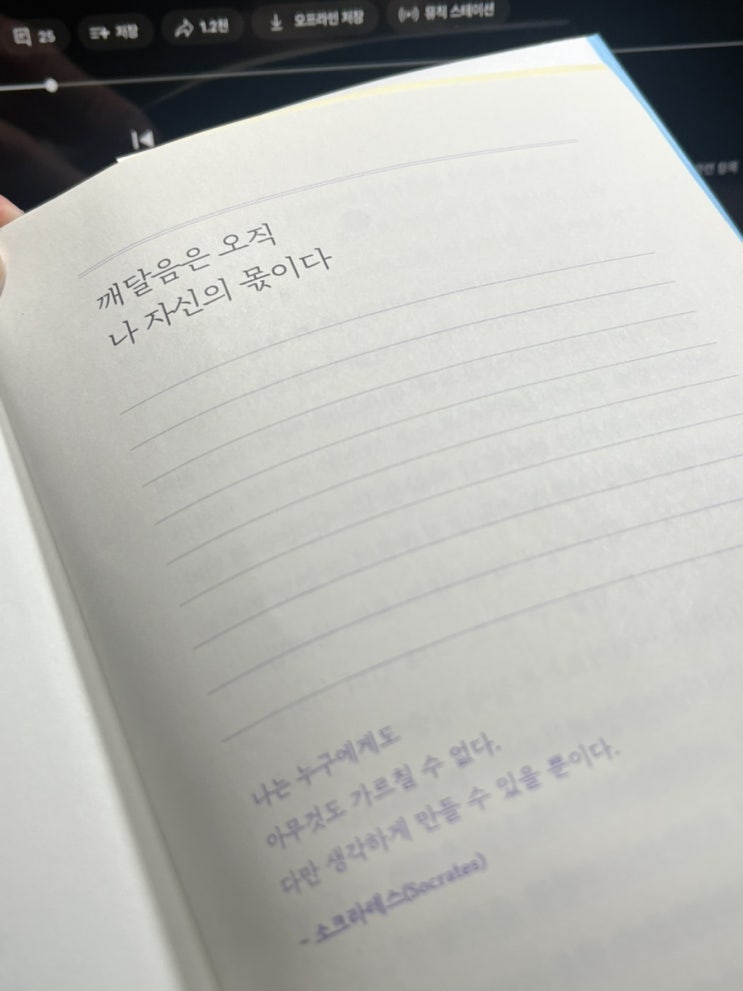 25
저장
1.2천
오프라인 저장
뮤직 스테이션
깨달음은 오직
나 자신의 몫이다
나는 누구에게도
아무것도 가르칠 수 없다.
다만 생각하게 만들 수 있을 뿐이다.
- 소크라테스(Socrates)